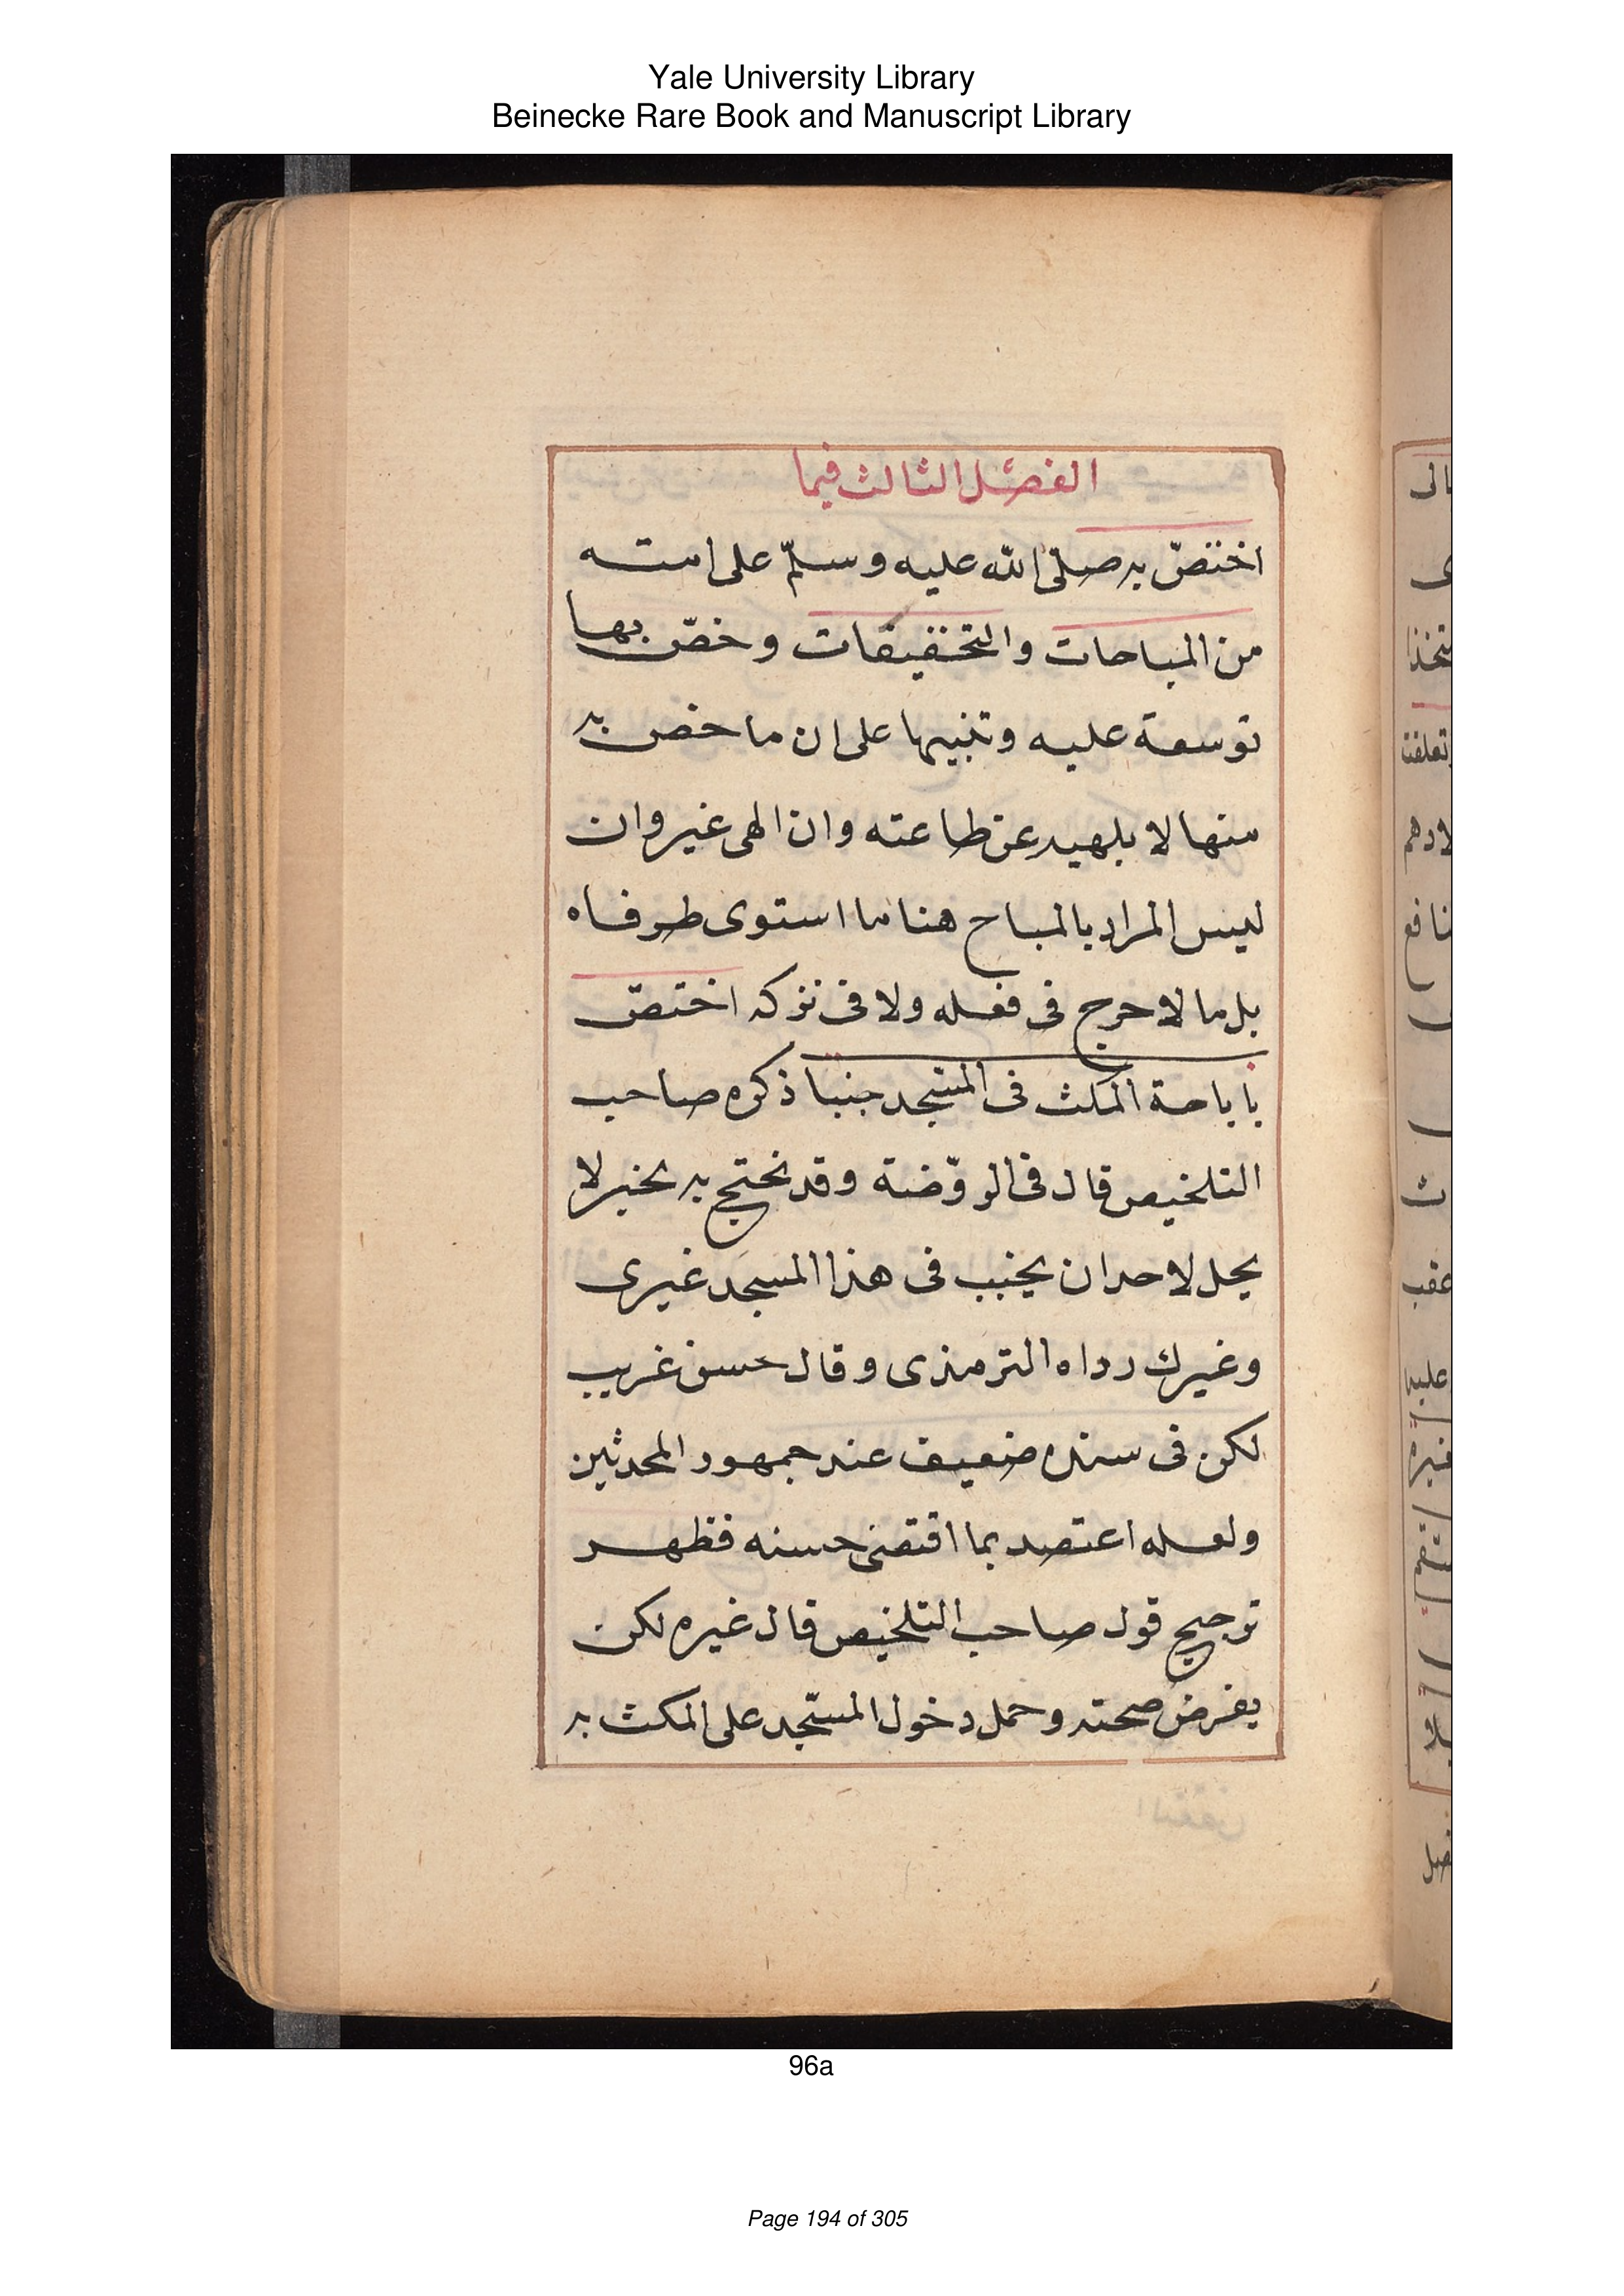 Yale University Library
Beinecke Rare Book and Manuscript Library
الفصل الثالث فيما
اختصّ به صلّى الله عليه وسلّم على امته
من المباحات والتخفيفات وخصّ بها
توسعة عليه وتنبيها على ان ما خص به
منها لا يلهيه عن طاعته وان الهى غيره وان
ليس المراد بالمباح هنا ما استوى طرفاه
بل ما لا حرج فى فعله ولا فى تركه اختصّ
باباحة المكث فى المسجد جنبا ذكره صاحب
التلخيص قال فى الروّضة وقد يحتج به بخبر لا
يحل لاحد ان يجنب فى هذا المسجد غيرى
وغيرك رواه الترمذى وقال حسن غريب
لكن فى سنده ضعيف عند جمهور المحدثين
ولعله اعتضد بما اقتضى حسنه فظهر
ترجيح قول صاحب التلخيص قال غيره لكن
بفرض صحته وحمل دخول المسجد على المكث به
96a
Page 194 of 305